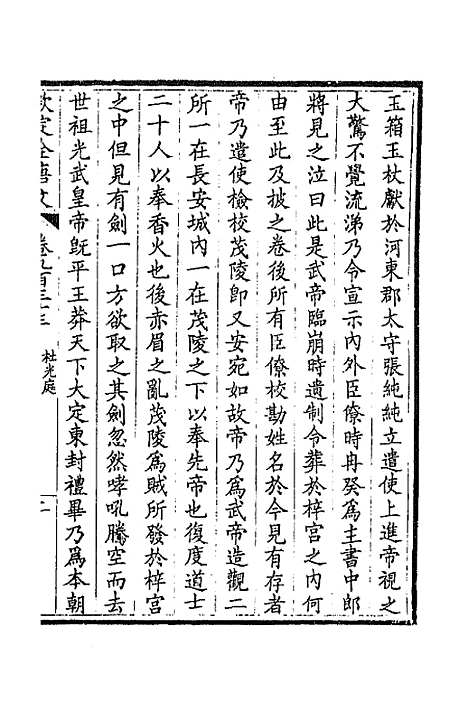 玉箱玉杖獻於河東郡太守張純純立遣使上進帝視之
大驚不覺流涕乃令宣示內外臣僚時冉癸爲主書中郎
將見之泣曰此是武帝臨崩時遺制令葬於梓宮之內何
由至此及披之卷後所有臣僚校勘姓名於今見有存者
帝乃遣使檢校茂陵卽又安宛如故帝乃爲武帝造觀二
所一在長安城內一在茂陵之下以奉先帝也復度道士
二十人以奉香火也後赤眉之亂茂陵爲賊所發於梓宮
之中但見有劍一口方欲取之其劍忽然哮吼騰空而去
世祖光武皇帝旣平王莽天下大定東封禮畢乃爲本朝
欽定全唐文 卷九百三十三 杜光庭 二